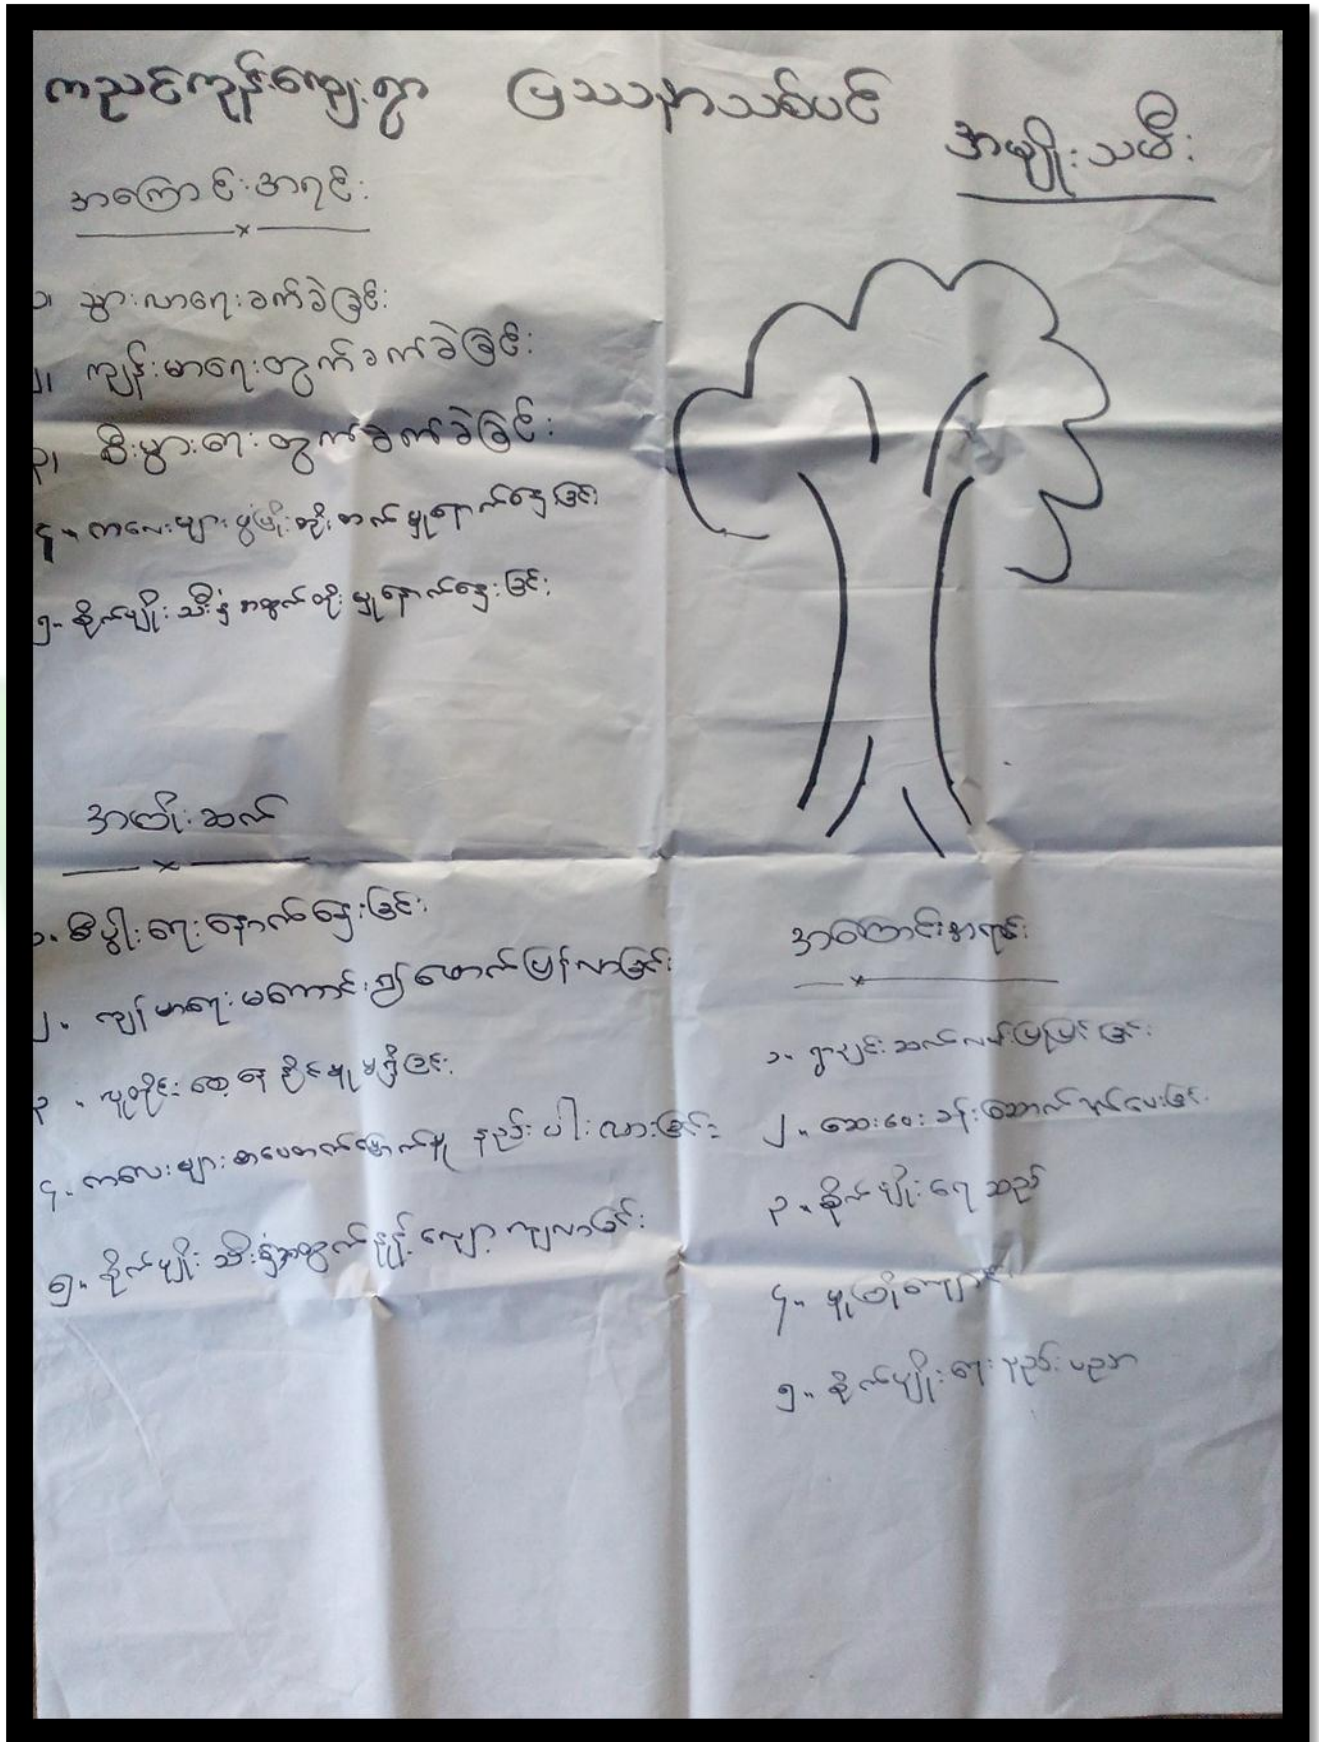 ကညင်ကုန်းကျေးရွာ ပြဿနာသစ်ပင်
အမျိုးသမီး
အကြောင်းအရင်း
၁၊ သွားလာရေးခက်ခဲခြင်း
၂၊ ကျန်းမာရေးတွက်ခက်ခဲခြင်း
၃၊ စီးပွားရေးတွက်ခက်ခဲခြင်း
၄။ ကလေးများဖွံ့ဖြိုးတိုးတက်မှုနောက်နှေးခြင်း
၅။ စိုက်ပျိုးသီးနှံအထွက်တိုးမှုနောက်နှေးခြင်း
အကျိုးဆက်
၁။ စီးပွါးရေးနောက်နှေးခြင်း
၂။ ကျန်မာရေးမကောင်း၍ဖောက်ပြန်လာခြင်း
၃။ လူတိုင်း နေနိုင်မှုမရှိခြင်း
၄။ ကလေးများစာပေတက်မြောက်မှု နည်းပါးလာခြင်း
၅။ စိုက်ပျိုးသီးနှံအထွက်နှုန့်လျော့ကျလာခြင်း
အကြောင်းအရင်း
၁။ ရွာချင်းဆက်လမ်းပြုပြင်ခြင်း
၂။ ဆေးပေးခန်းဆောက်လုပ်ပေးခြင်း
၃။ စိုက်ပျိုးရေသည်
၄။ မူကြိုကျောင်း
၅။ စိုက်ပျိုးရေးနည်းပညာ